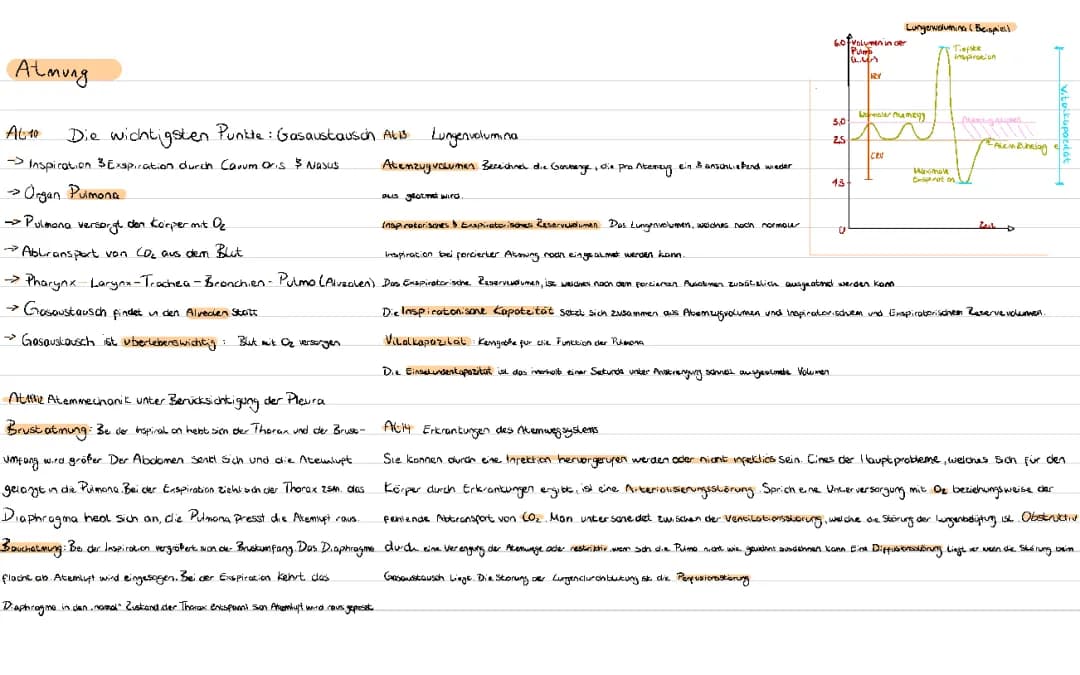 Atmung
Ab10 Die wichtigsten Punkte: Gasaustausch
-> Inspiration & Exspiration durch Cavum Oris & Nasus
-> Organ Pulmona
-> Pulmona versorgt den Körper mit O₂
-> Abtransport von CO₂ aus dem Blut
-> Pharynx - Larynx - Trachea - Bronchien - Pulmo (Alveolen)
-> Gasaustausch findet in den Alveolen statt
-> Gasaustausch ist überlebenswichtig: Blut mit O₂ versorgen
Atemmechanik unter Berücksichtigung der Pleura
Brustatmung: Bei der Inspiration hebt sich der Thorax und der Brust-
umfang wird größer. Der Abdomen senkt sich und die Atemluft
gelangt in die Pulmona. Bei der Exspiration zieht sich der Thorax zsm. das
Diaphragma hebt sich an, die Pulmona presst die Atemluft raus.
Bauchatmung: Bei der Inspiration vergrößert sich der Brustumfang. Das Diaphragma
flacht ab. Atemluft wird eingesogen. Bei der Exspiration kehrt das
Diaphragma in den "normal" Zustand der Thorax entspannt sich Atemluft wird raus gepresst
Ab13 Lungenvolumina
Atemzugvolumen: Bezeichnet die Gasmenge, die pro Atemzug ein & anschließend wieder
aus geatmet wird.
Inspiratorisches & Exspiratorisches Reservevolumen: Das Lungenvolumen, welches nach normaler
Inspiration bei forcierter Atmung noch eingeatmet werden kann.
Das Exspiratorische Reservevolumen, ist welches nach dem forcierten Ausatmen zusätzlich ausgeatmet werden kann
Die Inspiratorische Kapatzität setzt sich zusammen aus Atemzugvolumen und Inspiratorischem und Exspiratorischem Reservevolumen.
Vitalkapazität: Kenngröße für die Funktion der Pulmona
Die Einsekundenkapazität ist das innerhalb einer Sekunde unter Anstrengung schnell ausgeatmete Volumen
Ab14 Erkrankungen des Atemwegsystems
Sie können durch eine Infektion hervorgerufen werden oder nicht infektiös sein. Eines der Hauptprobleme, welches sich für den
Körper durch Erkrankungen ergibt, ist eine Arterialisierungsstörung. Sprich eine Unterversorgung mit O₂ beziehungsweise der
fehlende Abtransport von CO₂. Man unterscheidet zwischen der Ventilationsstörung, welche die Störung der Lungenbelüftung ist. Obstruktiv
durch eine Verengung der Atemwege oder restriktiv wenn sich die Pulmo nicht wie gewohnt ausdehnen kann. Eine Diffusionsstörung liegt vor wenn die Störung beim
Gasaustausch liegt. Die Störung der Lungendurchblutung ist die Perfusionsstörung
Lungenvolumina (Beispiel)
6.0
Volumen in der
Pulmo
IRV
Tiefste
Inspiration
3,0
Normaler Atemzug
2.5
Atemzugvolumen
ERV
Maximale
Exspiration
1.5
0
Zeit
Vitalkapazität